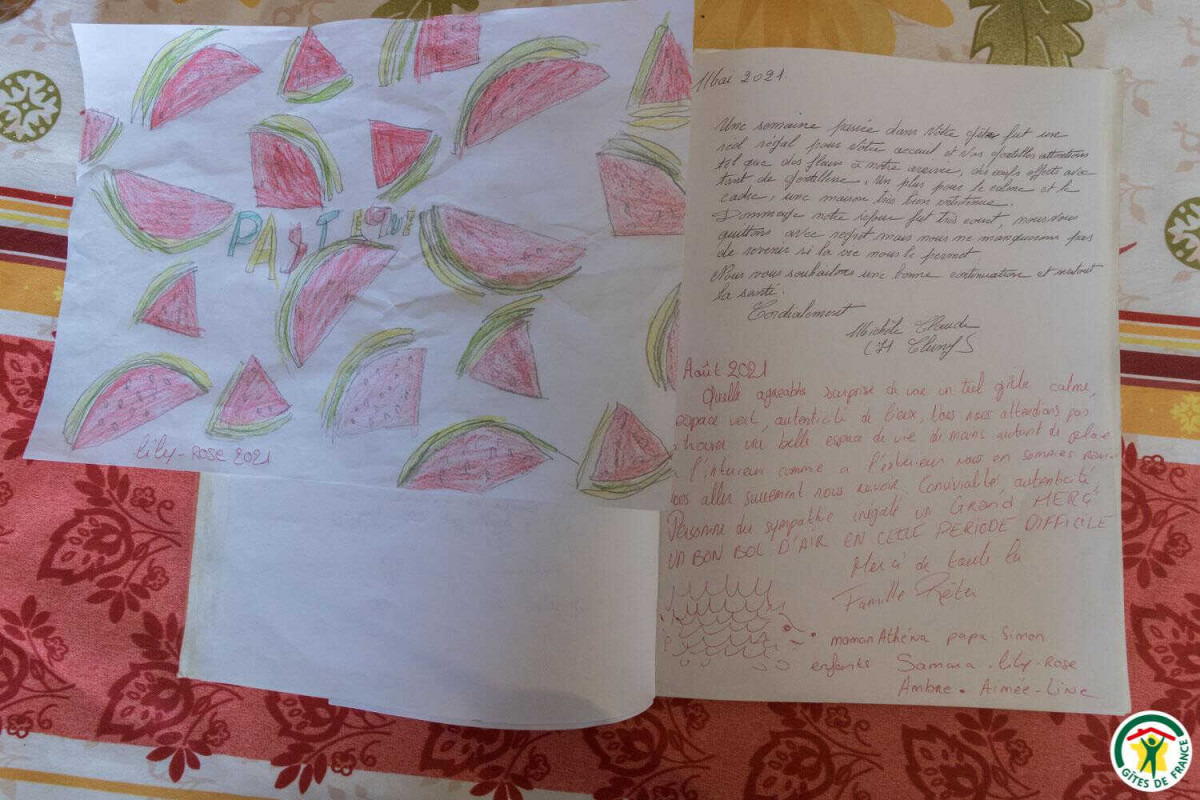 PASTEQUE
Lily-Rose 2021
Mai 2021.
Une semaine passée dans Votre gîte fut un
réel régal pour Votre accueil et Vos gentilles attentions
tel que des fleurs à notre arrivée, des oeufs offerts avec
tant de gentillesse. Un plus pour le calme et le
cadre, une maison très bien entretenue.
Dommage notre séjour fut très court, nous Vous
quittons avec regret mais nous ne manquerons pas
de revenir si la vie nous le permet
Nous vous souhaitons une bonne continuation et surtout
la santé.
Cordialement
Michèle Claude
(71 Cluny)
Août 2021
Quelle agréable surprise de vue un tel gîte calme,
espace vert, autenticité de lieux, Nous nous attendions pas
a trouver un belle espace de vie du moins autant de
a l'interieur comme a l'exterieur nous en sommes
alles surement nous revoir. Convivialité, autenticité
Personne du sympathie inégalé un Grand MERCI
UN BON BOL D'AIR EN CETTE PERIODE DIFFICILE
Merci de toute la
Famille
maman Athéna papa Simon
enfants Samara. Lily-Rose
Ambre. Aimée-Line
GÎTES DE FRANCE